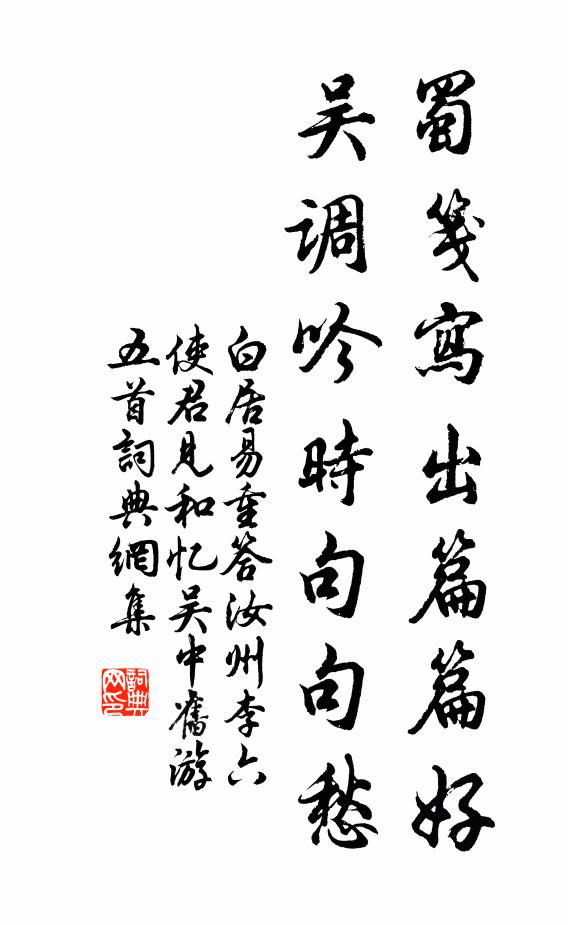 蜀箋寫出篇篇好
吴調吟時句句愁
白居易重答汝州李六
使君見和忆吴中舊游
五首詞典網集
詞典网印